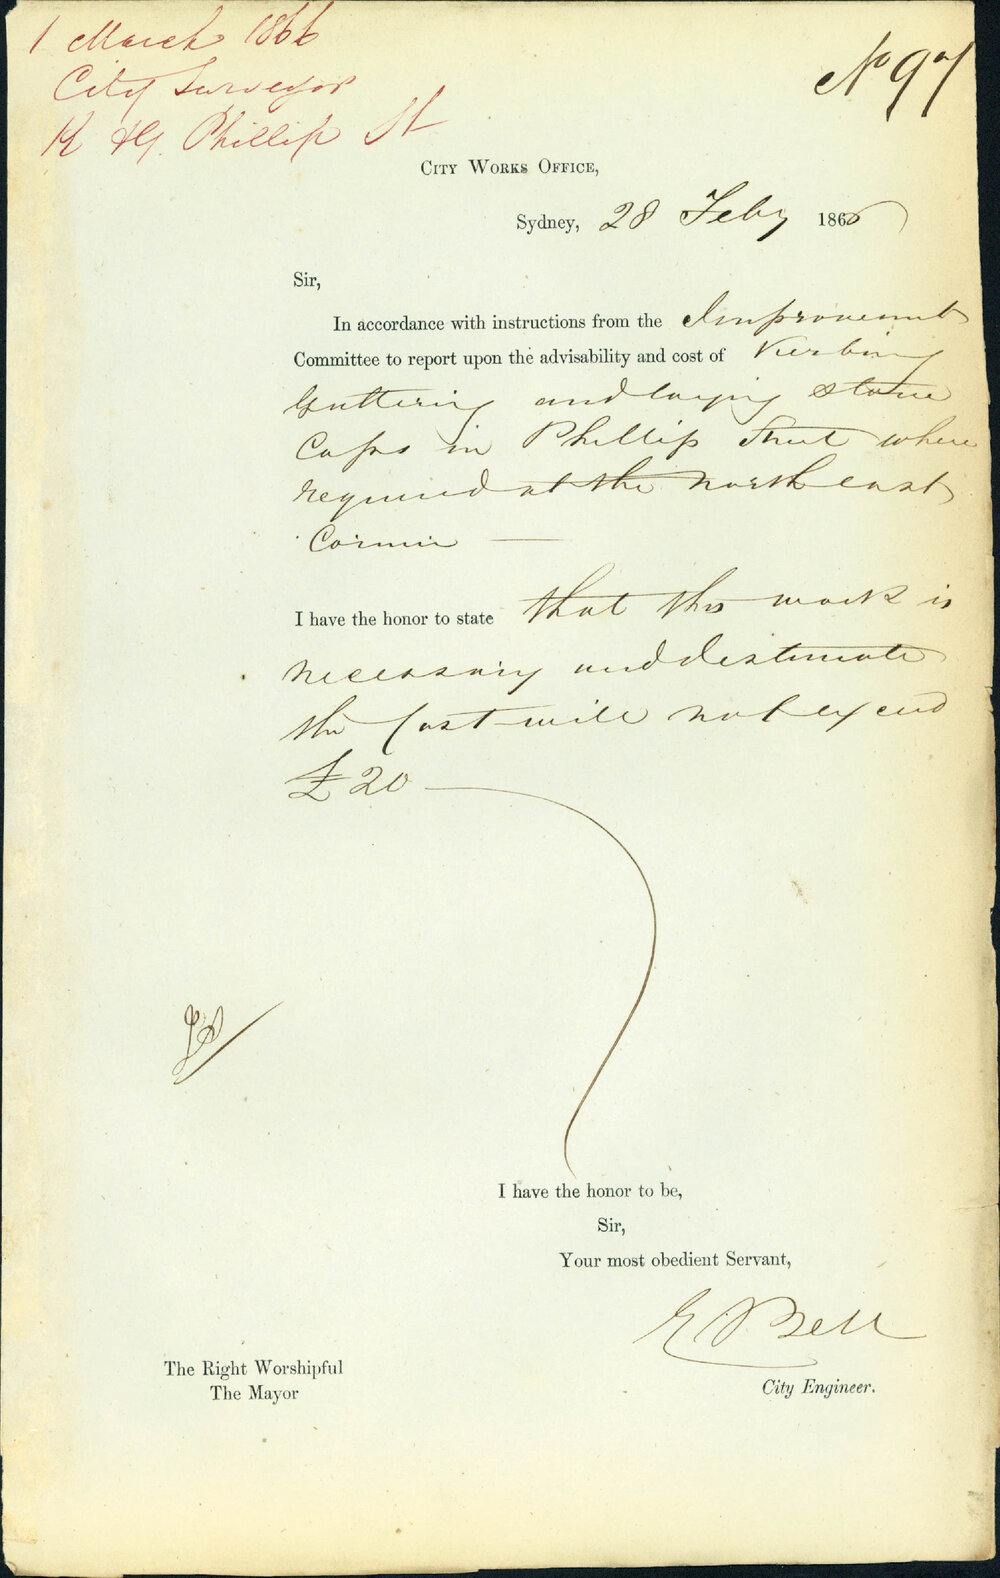 1 March 1866
City Surveyor
K & G. Phillip St
No 97
CITY WORKS OFFICE,
Sydney, 28 Feby 1866
Sir,
In accordance with instructions from the Improvement
Committee to report upon the advisability and cost of Kerbing
Guttering and laying stone
Caps in Phillip Street where
required at the north east
Corner
I have the honor to state that this work is
necessary and I estimate
the Cost will not exceed
£20
I have the honor to be,
Sir,
Your most obedient Servant,
E Bell
The Right Worshipful
The Mayor
City Engineer.